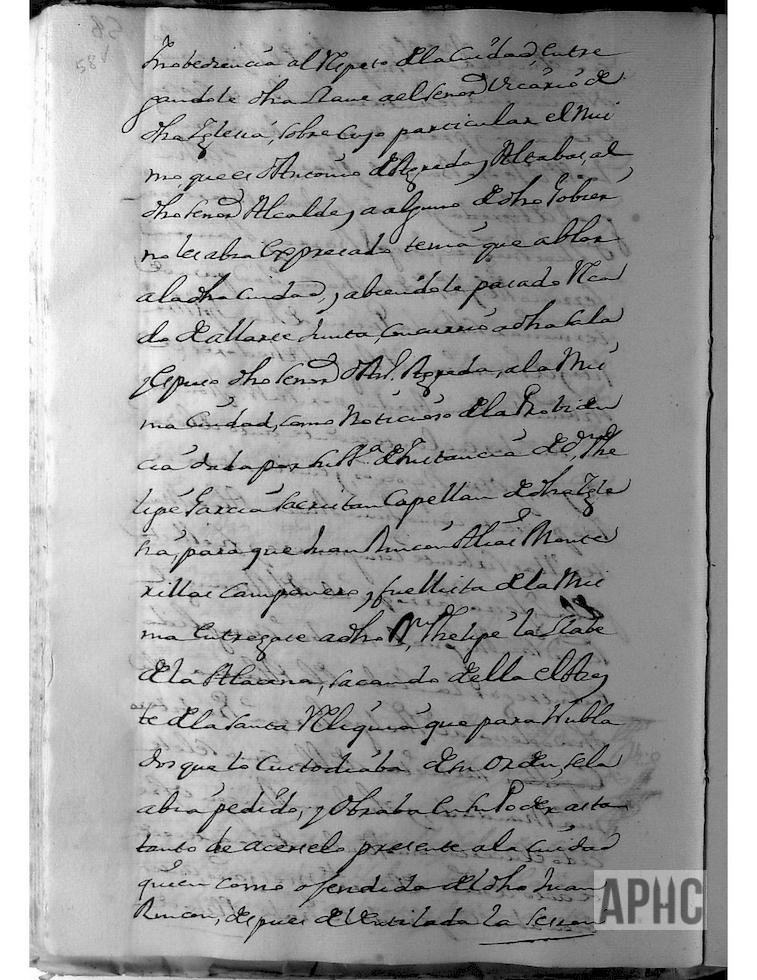 58v
Inobediencia al Respeto de la Ciudad, entre
gandole dha llave ael Senor Vicario de
dha Iglesia, sobre cuyo particular el Mis
mo, que es Antonio de Agreda, y Alcabas, al
dho Senor Alcalde, y a alguno de dho Gobier
no les abia Expresado tenia que ablar
a la dha Ciudad, y abiendole pasado Reca
do de allarse Junta, Concurrio a dha Sala
y Espuso dho Senor Dn Agreda, a la Mis
ma Ciudad, como Noticioso de la Probiden
cia dada por su Sa. a Instancia de Dn Phe
lipe Garcia Sacristan Capellan de dha Igle
sia, para que Juan Rincon Alias Monte
rillas Campanero, y fuellista de la Mis
ma Entregase a dho Dn Phelipe la Llabe
de la Alacena, sacando de ella el
te de la Santa Reliquia que para Nubla
dos que lo Custodiaba de su Orden, se la
abia pedido, y Obraba en su Poder asta
tanto de acerselo presente a la Ciudad
quien como ofendida del dho Juan
Rincon, despues de Ventilada la Sesion
APHC